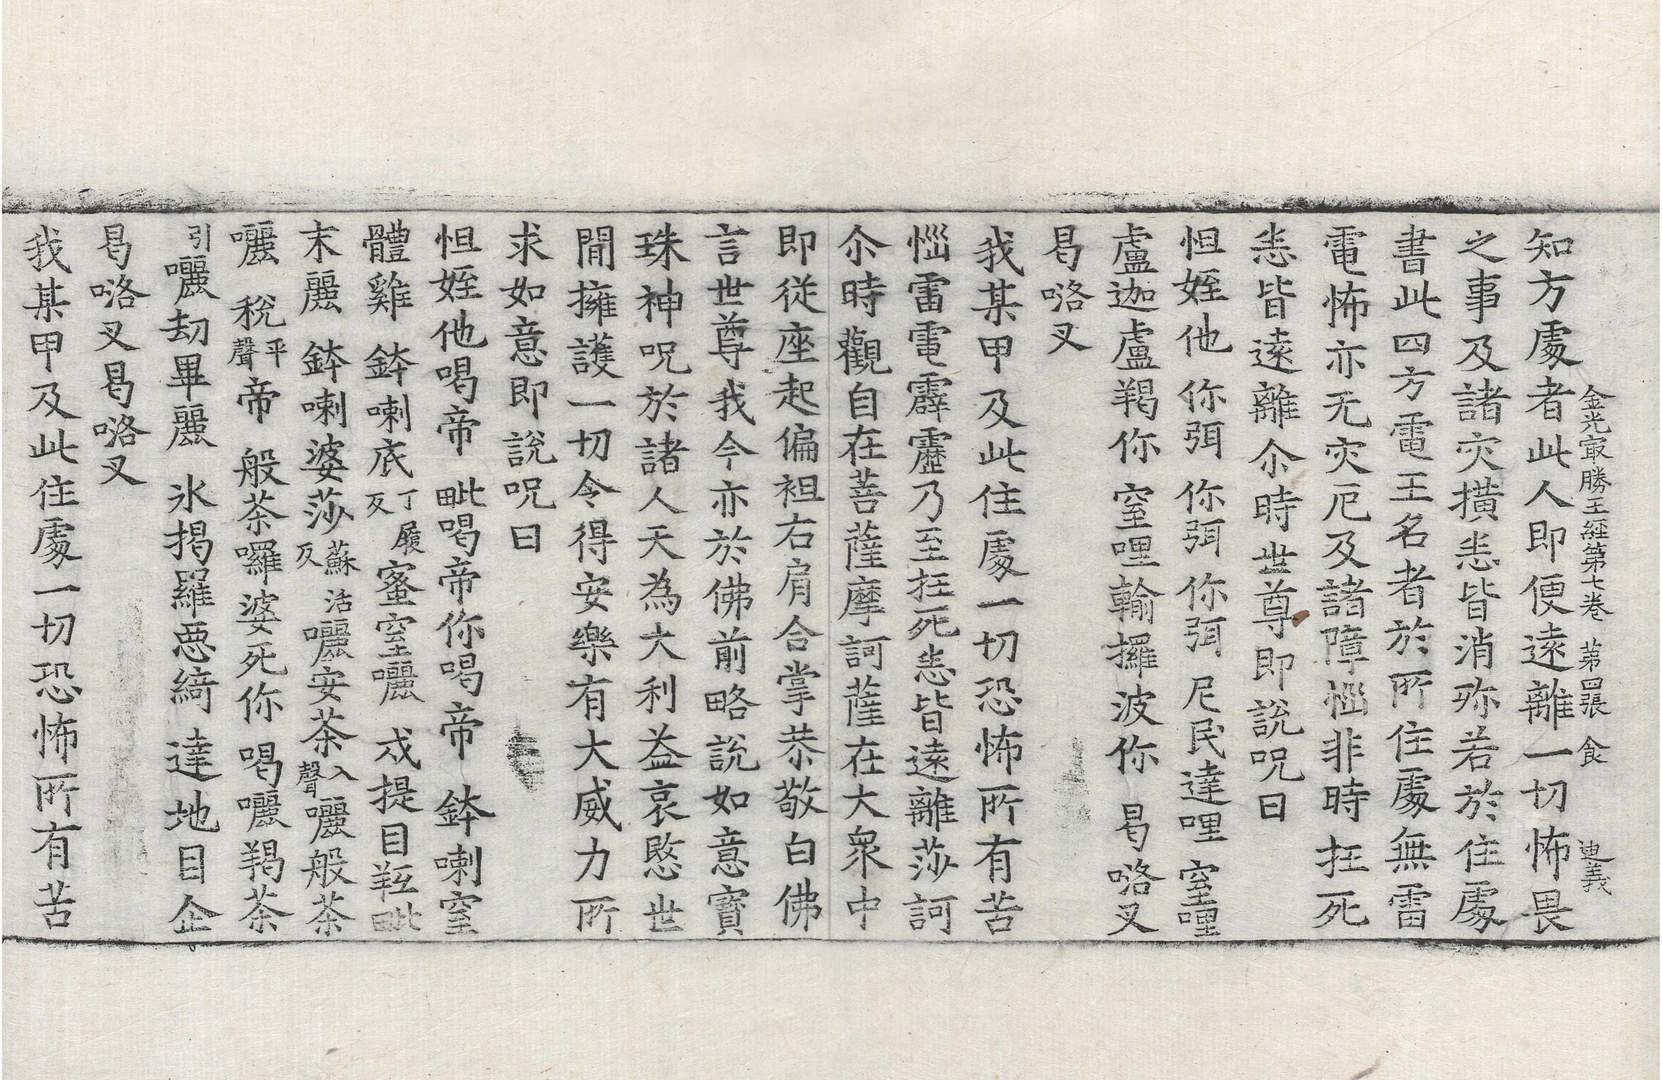 金光㝡勝王經第七卷 苐四張 食 迪義
知方處者此人即便逺離一切怖畏
之事及諸灾横恚皆消弥若於住處
書此四方電王名者於所住處無雷
電怖亦无灾厄及諸障惱非時抂死
恚皆逺離尒時世尊即説呪曰
怛姪他 你弭你弭你弭 尼民達哩 窒哩
盧迦盧羯你 窒哩輸攞波你 曷咯叉
曷咯叉
我某甲及此住處一切恐怖所有苦
惱雷電霹靂乃至抂死恚皆逺離莎訶
尒時觀自在菩薩摩訶薩在大衆中
即從座起偏袒右肩合掌恭敬白佛
言世尊我今亦於佛前略説如意寶
珠神呪於諸人天為大利益哀愍世
間擁護一切令得安樂有大威力所
求如意即說呪曰
怛姪他喝帝 毗喝帝你喝帝 鉢喇窒
體雞 鉢喇底丁履反蜜窒囇 戍提目羥毗
末麗 鉢喇婆莎蘇活反囇安荼入聲囇般荼
囇 稅平聲帝 般荼囉婆死你 喝囇羯荼
引囇劫畢麗 氷揭羅惡綺 達地目企
曷咯叉曷咯叉
我某甲及此住處一切恐怖所有苦